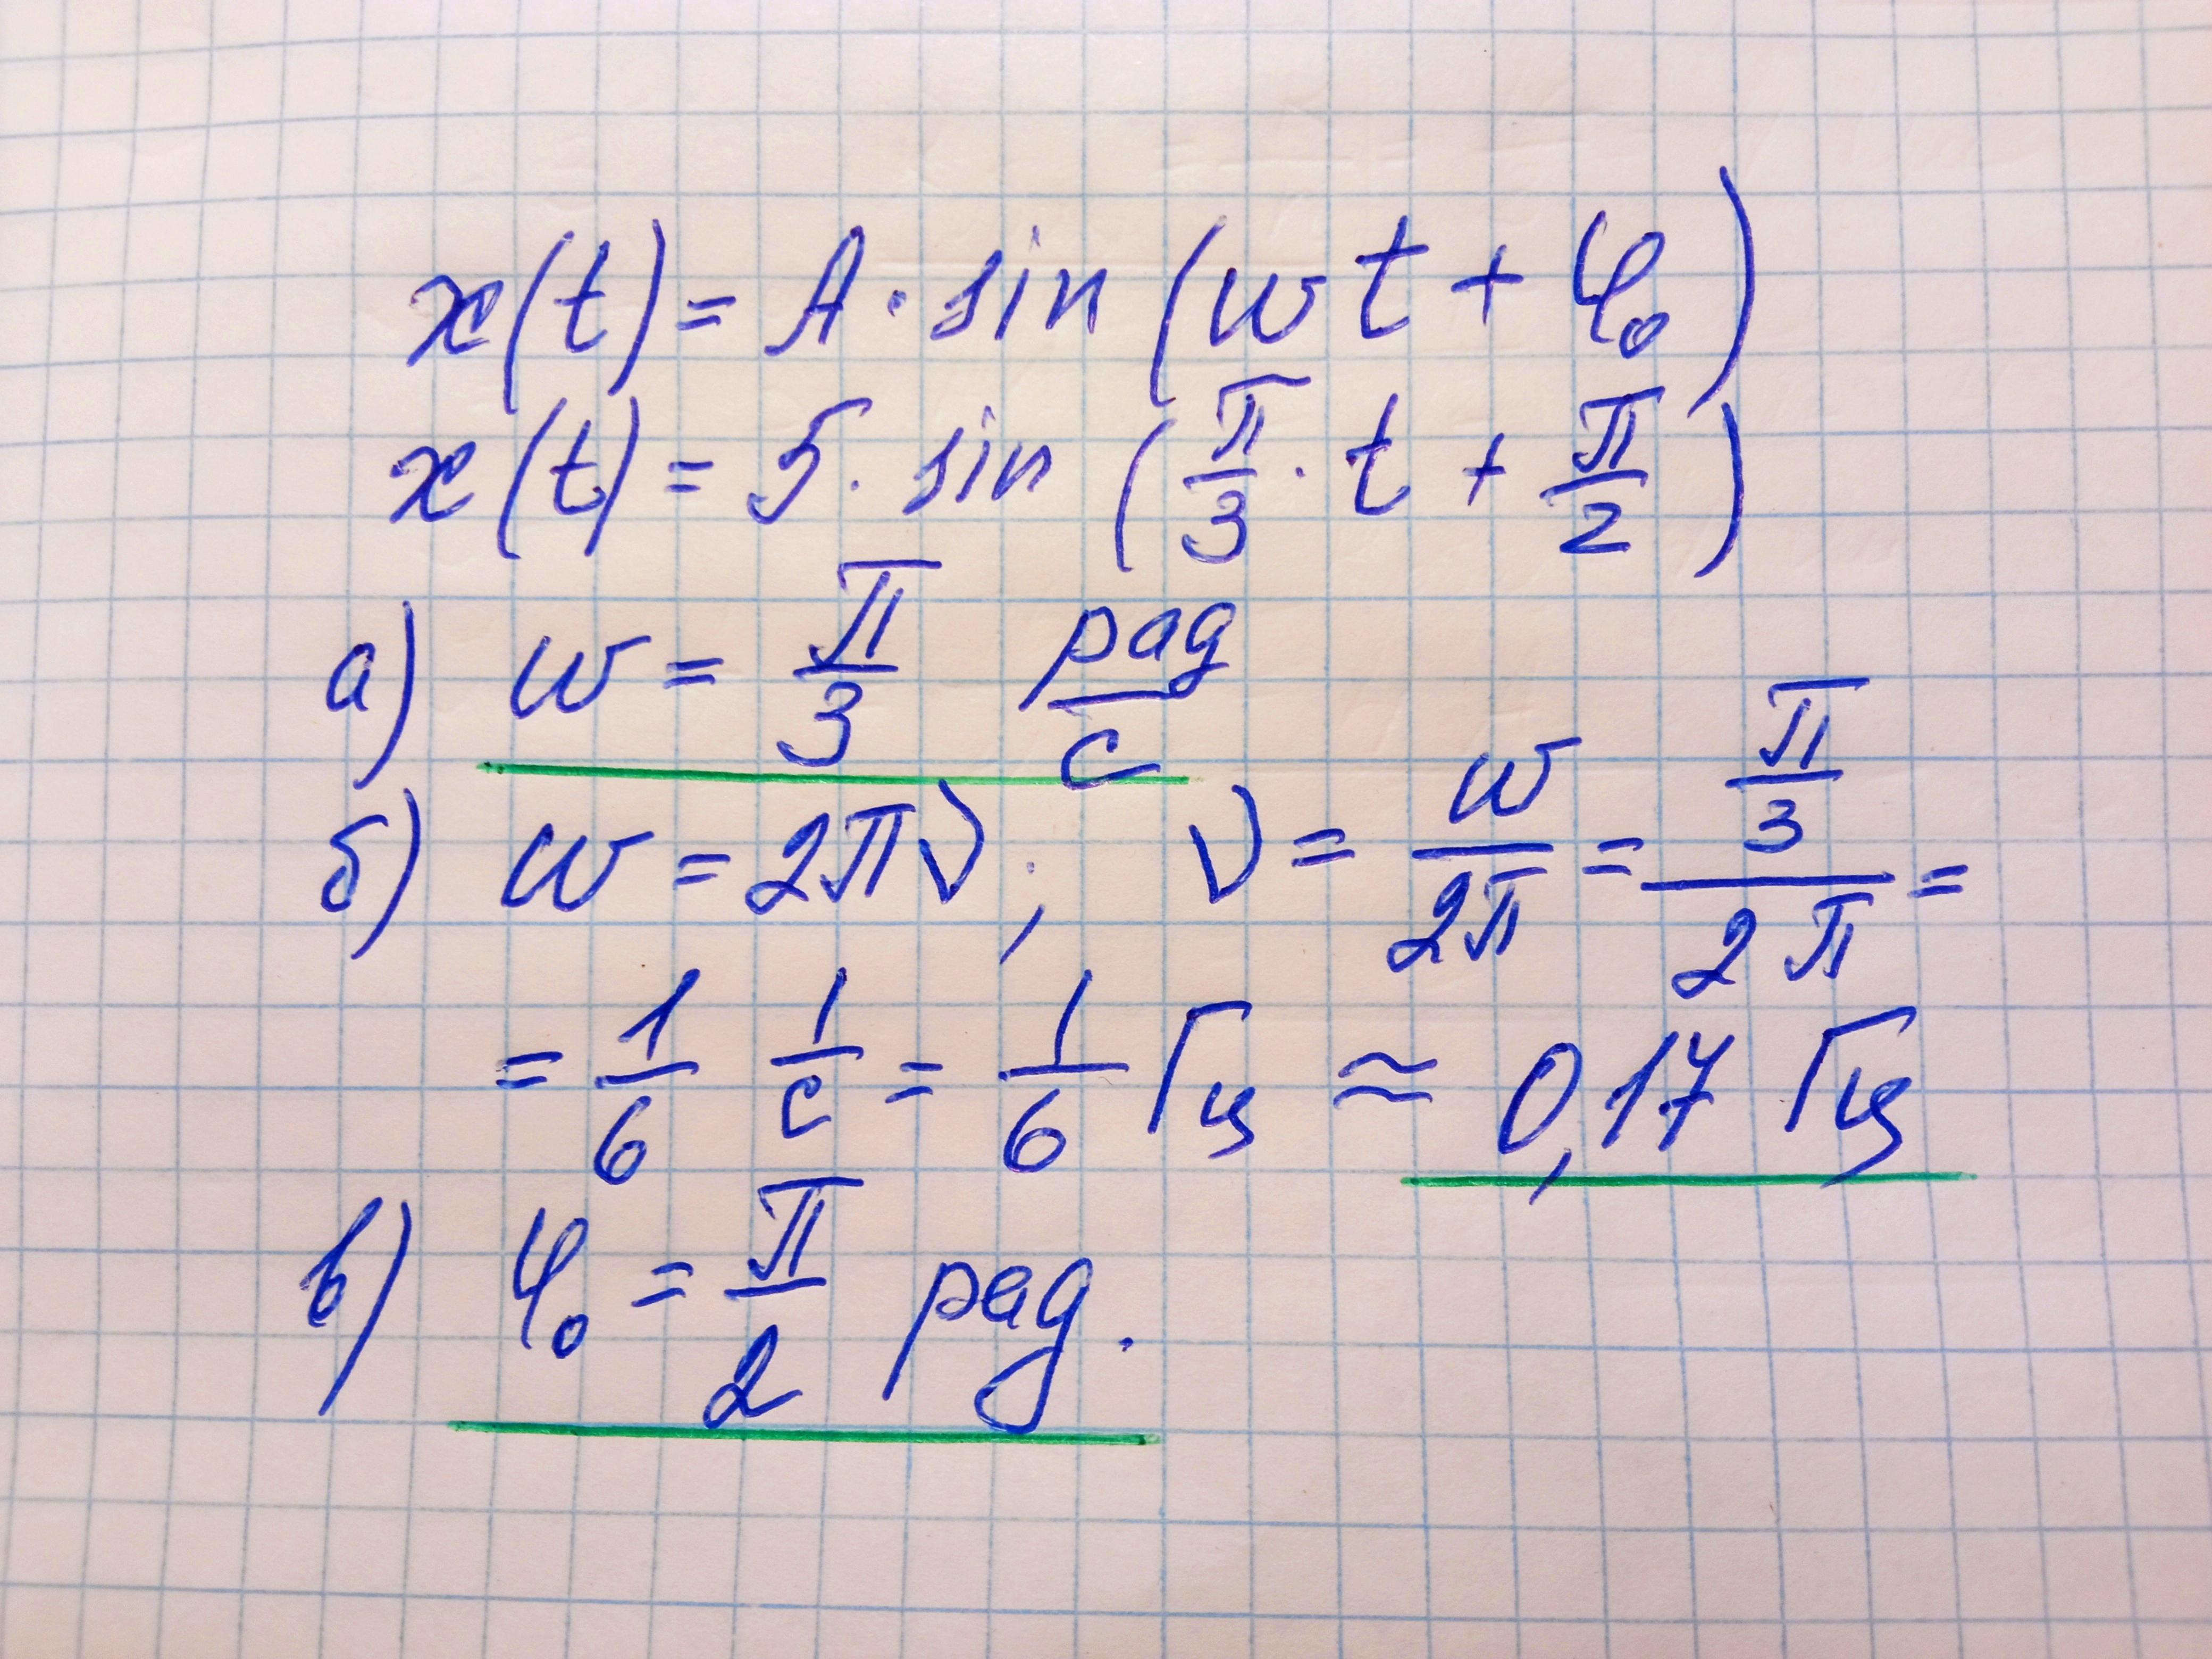 x(t) = A · sin (ωt + φ₀)
x(t) = 5 · sin (π/3 · t + π/2)
а) ω = π/3 рад/с
б) ω = 2πν; ν = ω/2π = π/3 / 2π =
= 1/6 1/с = 1/6 Гц ≈ 0,17 Гц
в) φ₀ = π/2 рад.